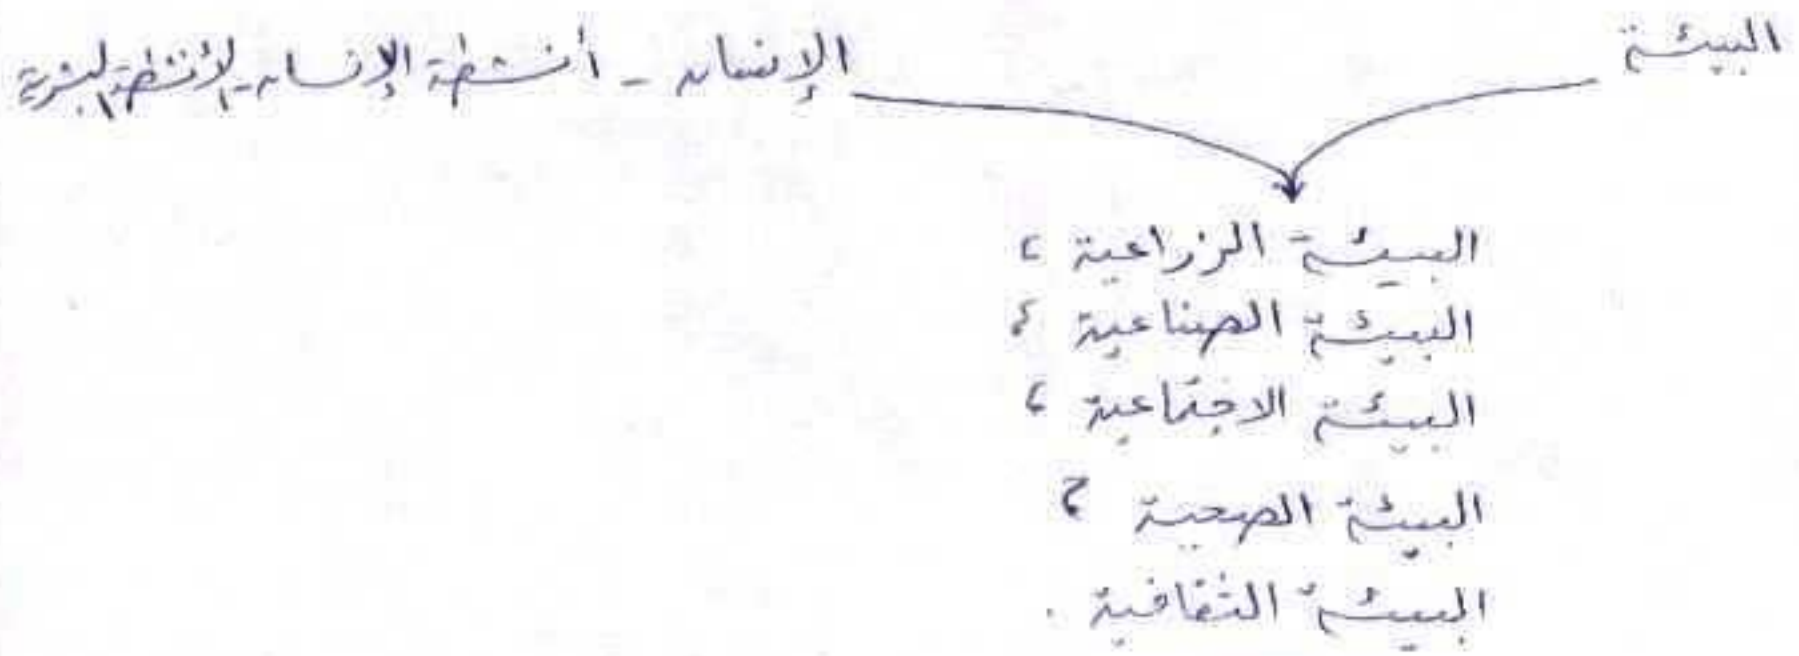 البيئة الإنسان - أنشطة الإنسان - الأنشطة البشرية
البيئة الزراعية ،
البيئة الصناعية ،
البيئة الاجتماعية ،
البيئة الصحية ،
البيئة الثقافية .